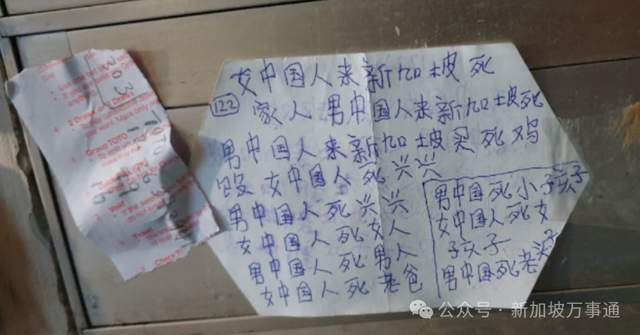 女中国人来新加坡死
122 家人男中国人来新加坡死
男中国人来新加坡买死鸡
饭 女中国人死兴兴
男中国人死兴兴
女中国人死女人
男中国人死男人
女中国人死老爸
男中国死小孩子
女中国人死女
孩子
男中国死老
303
TOTO
公众号·新加坡万事通